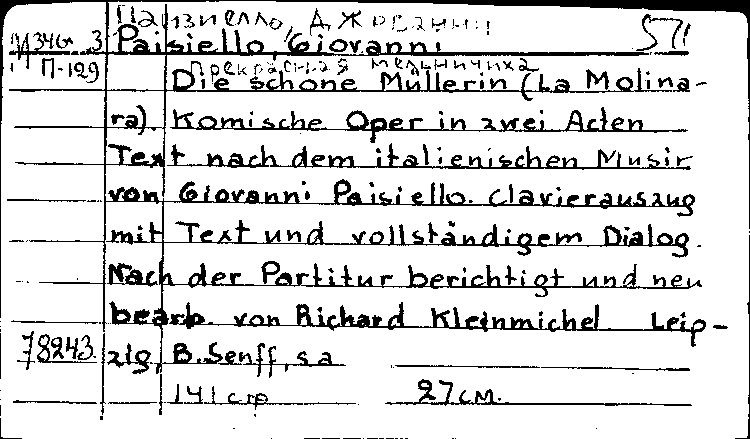 Паизиелло, Джованни
Paisiello, Giovanni
П-129
Прекрасная мельничиха
Die schöne Müllerin (La Molina-
ra). Komische Oper in zwei Acten
Text nach dem italienischen Musir
von Giovanni Paisiello. Clavierauszug
mit Text und vollständigem Dialog.
Nach der Partitur berichtigt und neu
bearb. von Richard Kleinmichel Leip-
78243. zig, B. Senff, s.a
141 стр 27 см.